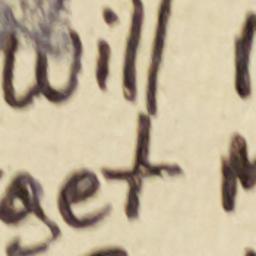 will
get